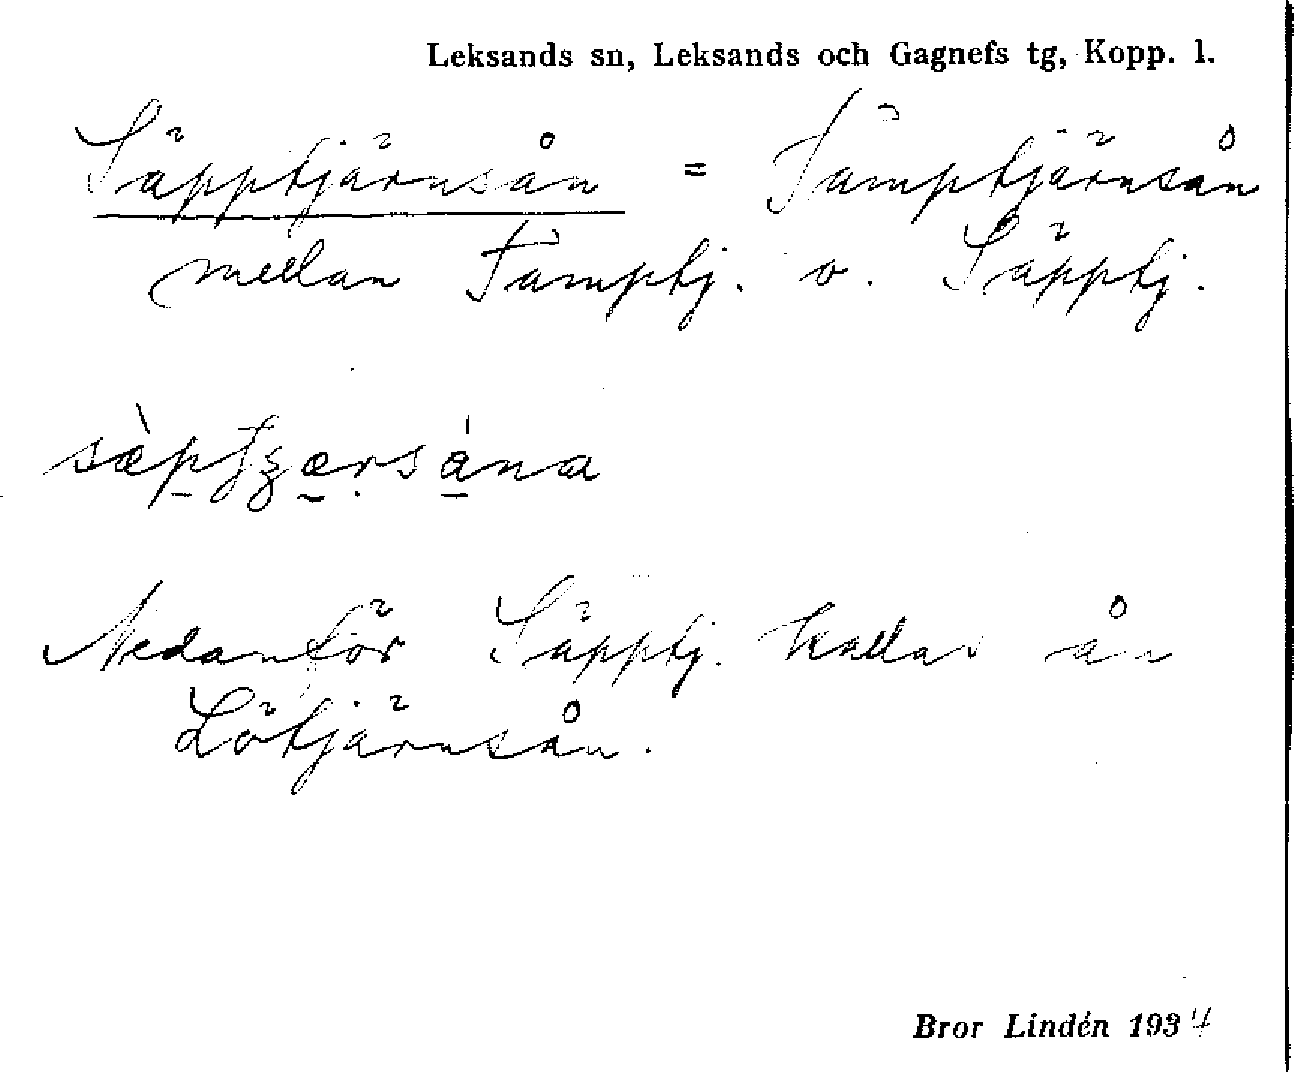 Leksands sn, Leksands och Gagnefs tg, Kopp. l.
Säpptjärnsån = Tämptjärnsån
mellan Tämptj. o. Säpptj.
Nedanför Säpptj. kallas ån
Lötjärnsån.
Bror Lindén 1934